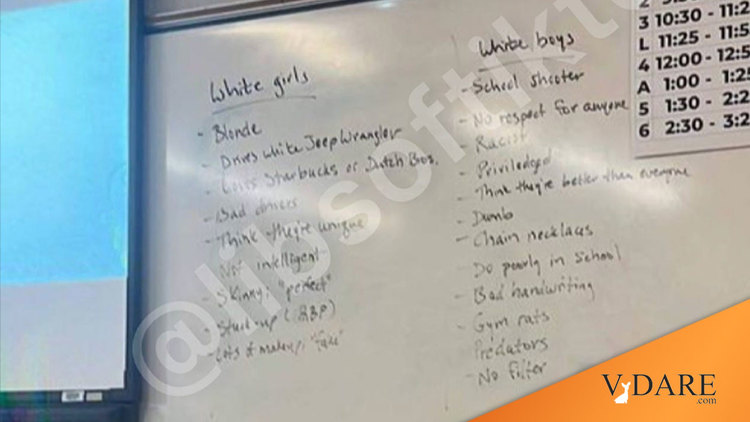 White girls
- Blonde
- Drives white Jeep Wrangler
- Loves Starbucks or Dutch Bros.
- Bad drivers
- Think they're unique
- Not intelligent
- Skinny, "perfect"
- Stuck-up (RBF)
- Lots of makeup, "fake"
White boys
- School shooter
- No respect for anyone
- Racist
- Priviledged
- Think they're better than everyone
- Dumb
- Chain necklaces
- Do poorly in school
- Bad handwriting
- Gym rats
- Predators
- No filter
3 10:30 - 11:2
L 11:25 - 11:5
4 12:00 - 12:5
A 1:00 - 1:25
5 1:30 - 2:2
6 2:30 - 3:2
@libsoftikto
VDARE
.com